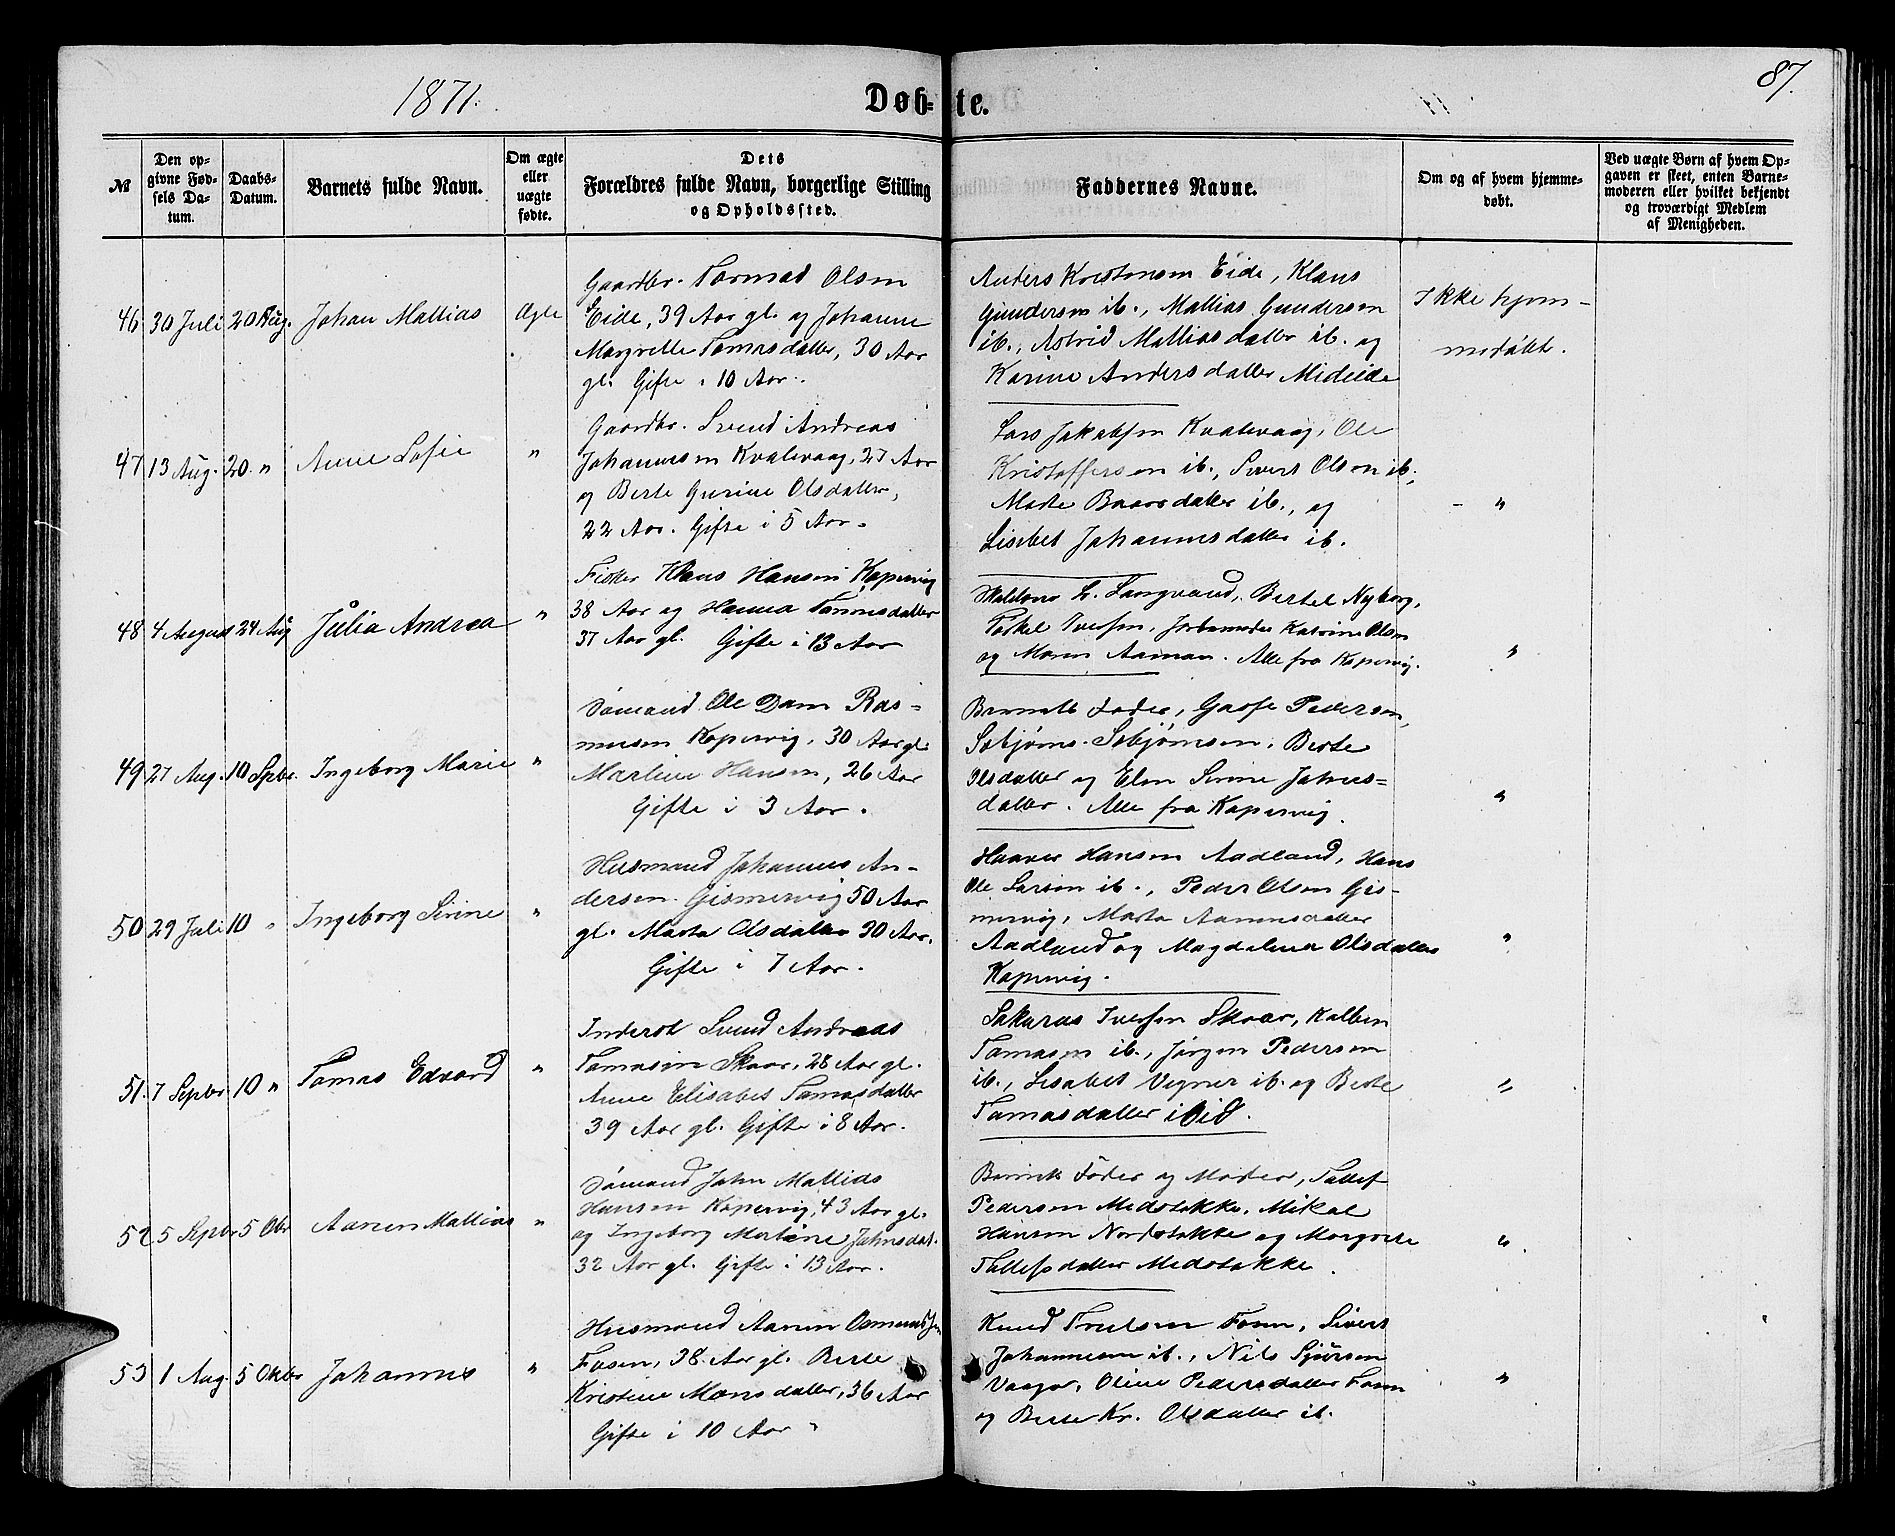 1871.
Døb-te.
87.
№
Den op-
givne Fød-
sels Da-
tum.
Daabs-
Datum.
Barnets fulde Navn.
Om ægte
eller
uægte
fødte.
Dets
Forældres fulde Navn, borgerlige Stilling
og Opholdssted.
Faddernes Navne.
Om og af hvem hjemme-
døbt.
Ved uægte Børn af hvem Op-
gaven er skeet, enten Barne-
moderen eller hvilket bekjendt
og troværdigt Medlem
af Menigheden.
46. 30 Juli 20 Aug. Johan Mattias Ægte
Gaardbr. Tormod Olsen
Eide, 39 Aar gl. og Johanne
Margrette Tomasdatter, 30 Aar
gl. Gifte i 10 Aar.
Anders Kristensen Eide, Klaus
Gundersen ib., Mattias Gundersen
ib., Astrid Mattiasdatter ib. og
Karine Andersdatter Mideide
Ikke hjem-
medøbt.
47 13 Aug. 20 " Anne Sofie "
Gaardbr. Svend Andreas
Johannesen Kvalevaag, 27 Aar
og Berte Gurine Olsdatter,
22 Aar. Gifte i 5 Aar.
Lars Jakobsen Kvalevaag, Ole
Kristoffersen ib., Sivert Olson ib.,
Marte Baarsdatter ib., og
Lisebet Johannesdatter ib.
- "
48 4 August 24 Aug Julia Andrea "
Fisker Klaus Hansen Kopervig
38 Aar og Hanna Tommesdatter
37 Aar gl. Gifte i 13 Aar
L. Langvand, Bertel Nyborg,
Torkel Iversen, Jordemoder Katrine Olsen
og Maren Aaman. Alle fra Kopervig.
"
49. 27 Aug. 10 Spbr. Ingeborg Marie "
Sømand Ole Dam Ras-
musen Kopervig, 30 Aar gl.
Martine Hansen, 26 Aar
Gifte i 3 Aar.
Barnets Fader, Pedersen,
Berte
Olsdatter og Elen Serine Johnes-
datter. Alle fra Kopervig.
"
50 29 Juli 10 " Ingeborg Serine "
Husmand Johannes An-
dersen Gismervig 50 Aar
gl. Marta Olsdatter 30 Aar.
Gifte i 7 Aar.
Haaver Hansen Aadland, Hans
Ole Larsen ib., Peder Olsen Gis-
mervig, Marta
Aadland og Magdalena Olsdatter
Kopervig.
"
51. 7 Sepbr 10 " Tomas Edvard "
Inderst Svend Andreas
Tomasen Skaar, 28 Aar gl.
Anne Elisabet Tomasdatter
39 Aar gl. Gifte i 8 Aar.
Sakarias Iversen Skaar, Kolben
Tomasen ib., Jørgen Pedersen
ib., Lisabet Vegner ib. og Berte
Tomasdatter ibid.
"
52 5 Sepbr 5 Obr Aanen Mattias "
Sømand John Mattias
Hansen Kopervig, 43 Aar gl.
og Ingeborg Martine Johnsdat.
32 Aar gl. Gifte i 13 Aar.
Barnets Fader og Moder, Tollef
Pedersen Medstokke, Mikal
Hansen Nordstokke og Margrete
Tollefsdatter Medstokke.
"
53 1 Aug 5 Oktbr Johannes "
Husmand Aanen Osmundsen
Fosen, 38 Aar gl. Berte
Kristine Monsdatter, 36 Aar
Gifte i 10 Aar
Knud Trulsen Fosen, Sivert
Johannesen ib., Nils Sjursen
Vaagar, Oline Pedersdatter Fosen
og Berte Kr. Olsdatter ib.
"